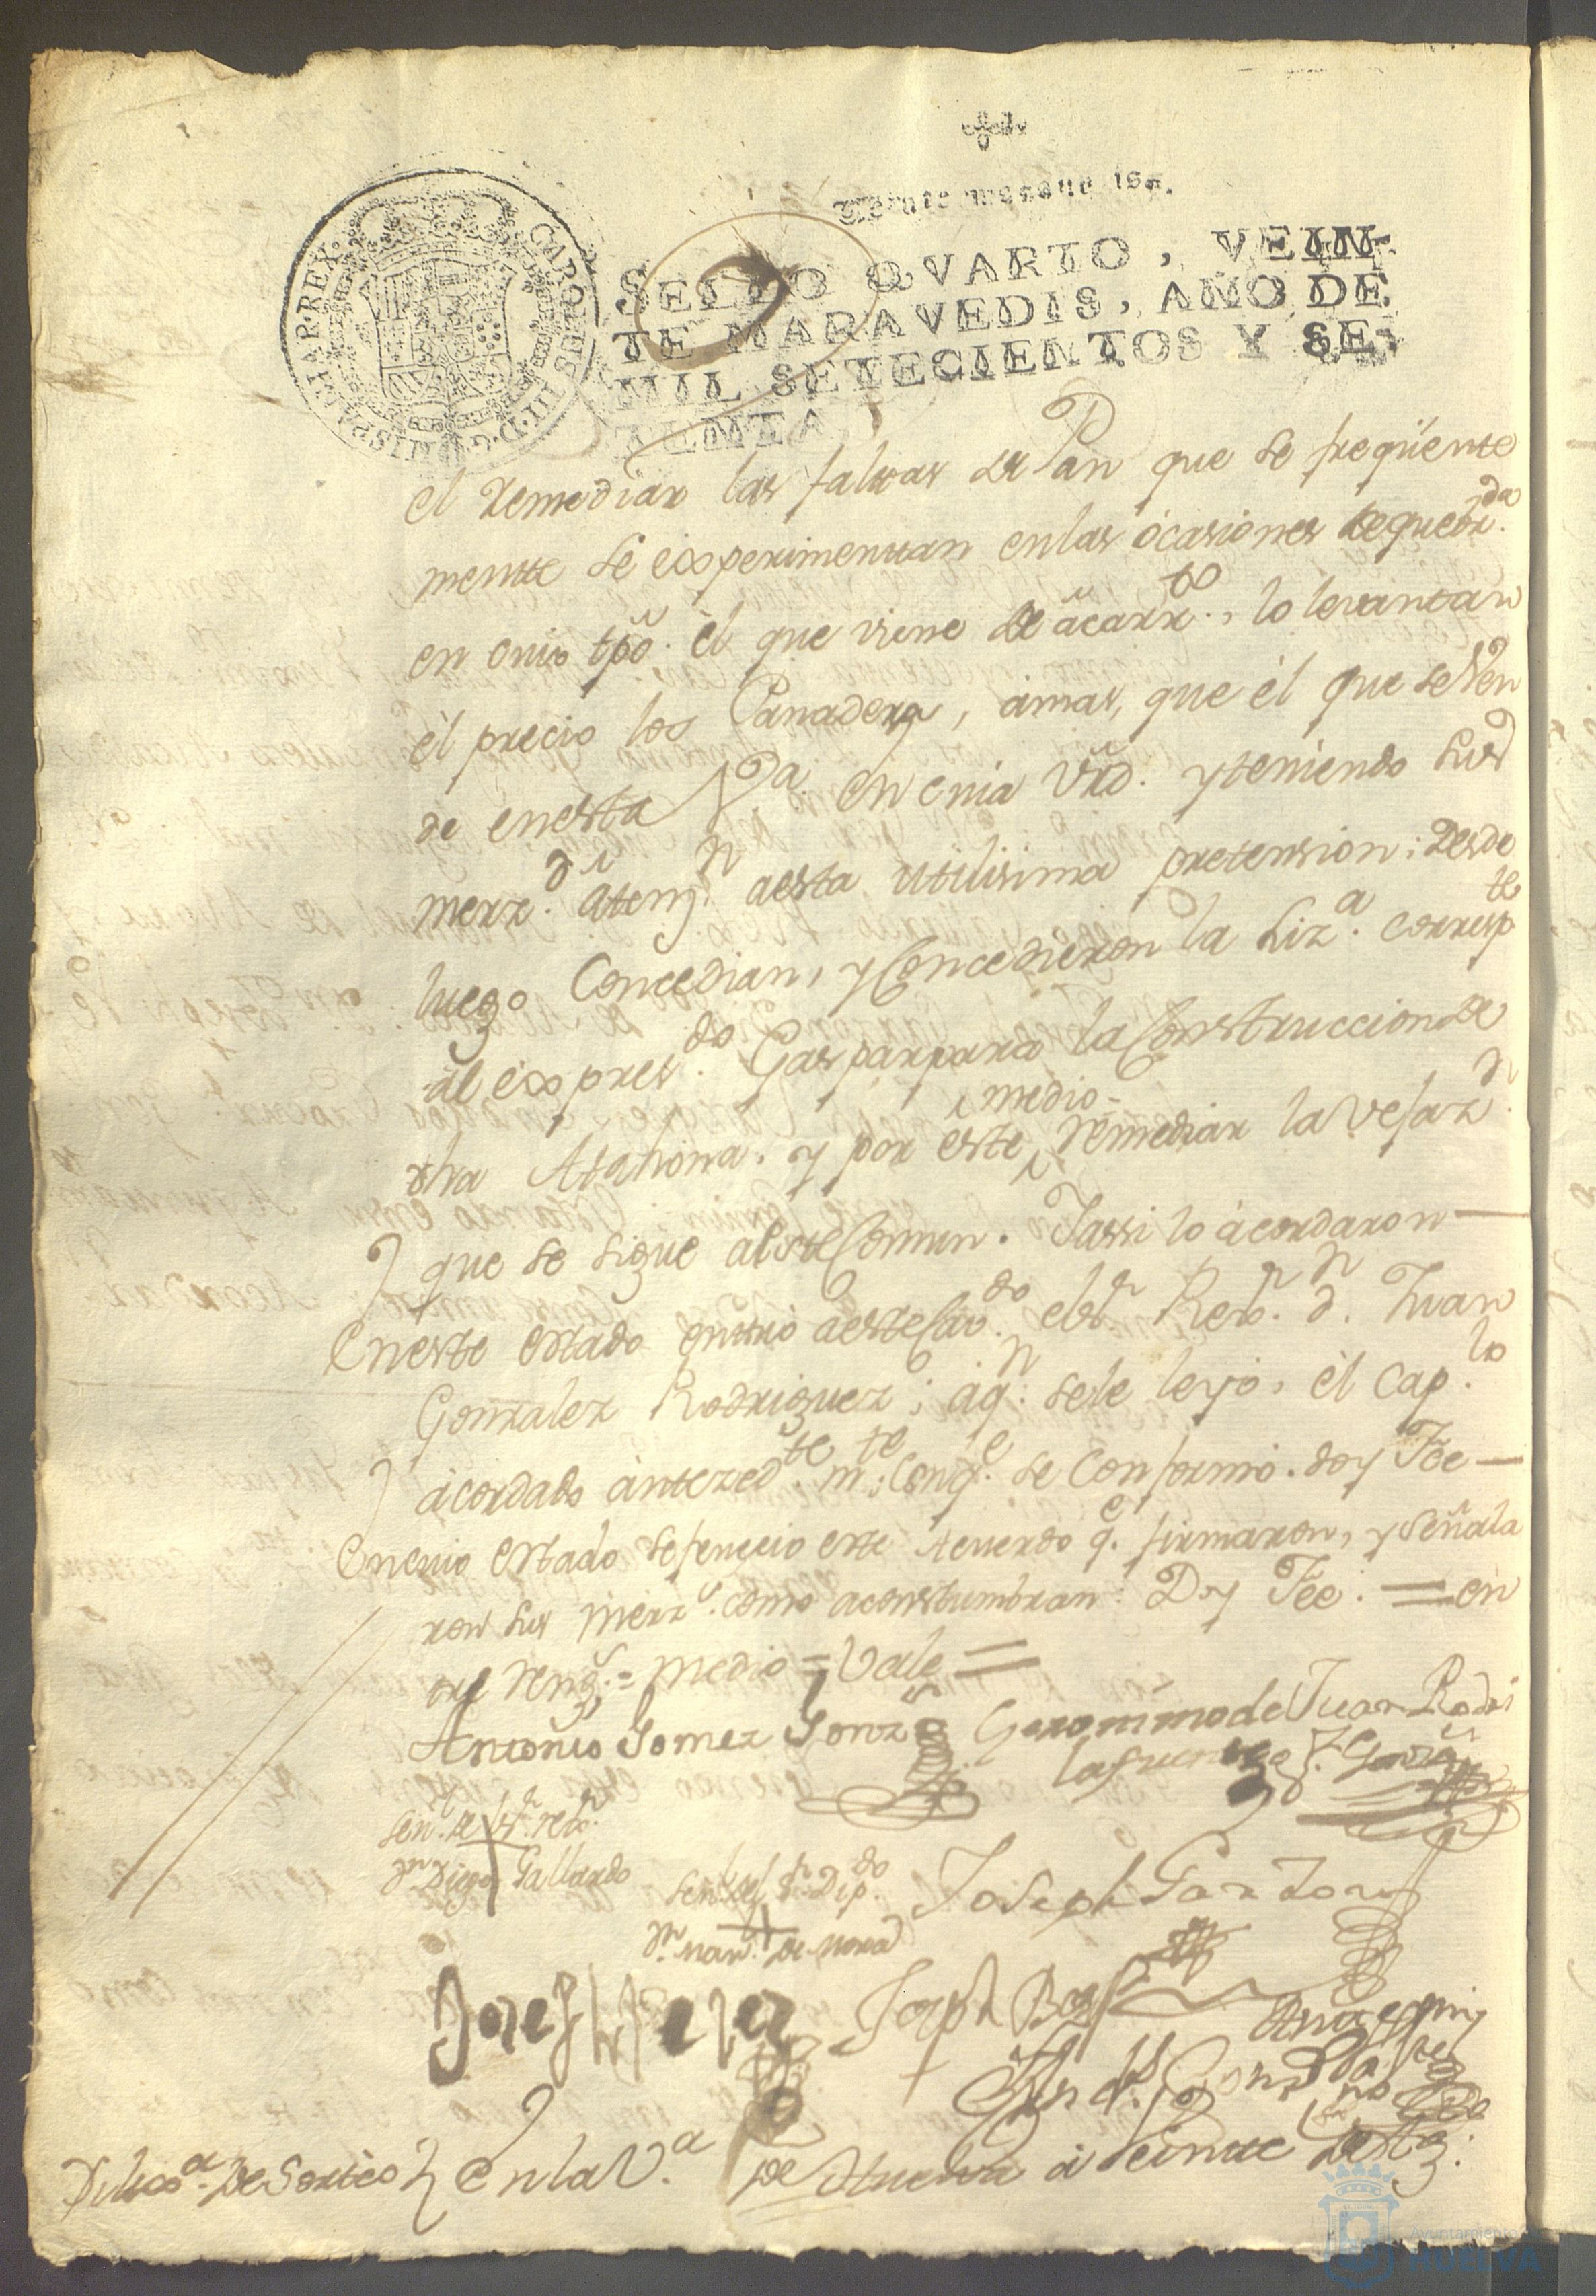 Veinte maravedis.
CAROLUS III D G HISPANIAR REX
SELLO QVARTO, VEIN-
TE MARAVEDIS, AÑO DE
MIL SETECIENTOS Y SE-
TENTA
el remediar las faltas de Pan que se freqüente
mente se experimentan en las ócasiones de que
en cuio tpõ. él que viene de acarrto., lo levantan
él precio los Panaderos, ámas, que él que se Ven
de en esta Va. en cuia Vrd. y teniendo sus
merzs. atenzn. a esta utilisima pretension; desde
luego Concedian, y Concedieron la Liza. correspte
al expresdo. Gaspar para la Construccion de
dha Atahona. y por este medio remediar la vejazn.
que se sigue a este Comun. Y assi lo ácordaron —
En este estado entró a este Cavdo. el Sr. Rexr. Dn. Juan
Gonzalez Rodriguez; áqn. se le leyó, él Caplo.
ácordado ántezedte. mte. se Conformó. doy Fee —
En cuio estado se fenecio este Acuerdo qe. firmaron, y señala
ron sus merzs. como acostumbran. Doy Fee. = en
tre rengs. = medio = Vale =
Antonio Gomez Geronimo de Juan Rodri
la fuente
señl. de el Sr. rexr.
Dn. Diego Gallardo
señl. del Sr. Dipdo.
Dn. Man. de Mora
Joseph Garzon
Joseph
Diliga. de Sorteo } En la Va. de Huelva á veinte de
Ayuntamiento
HUELVA